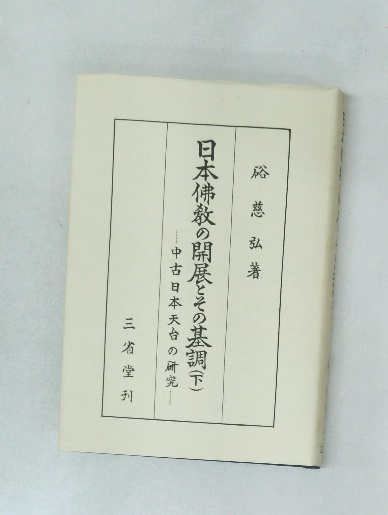 硲慈弘著
日本佛教の開展とその基調(下)
……中古日本天台の研究……
三省堂刊